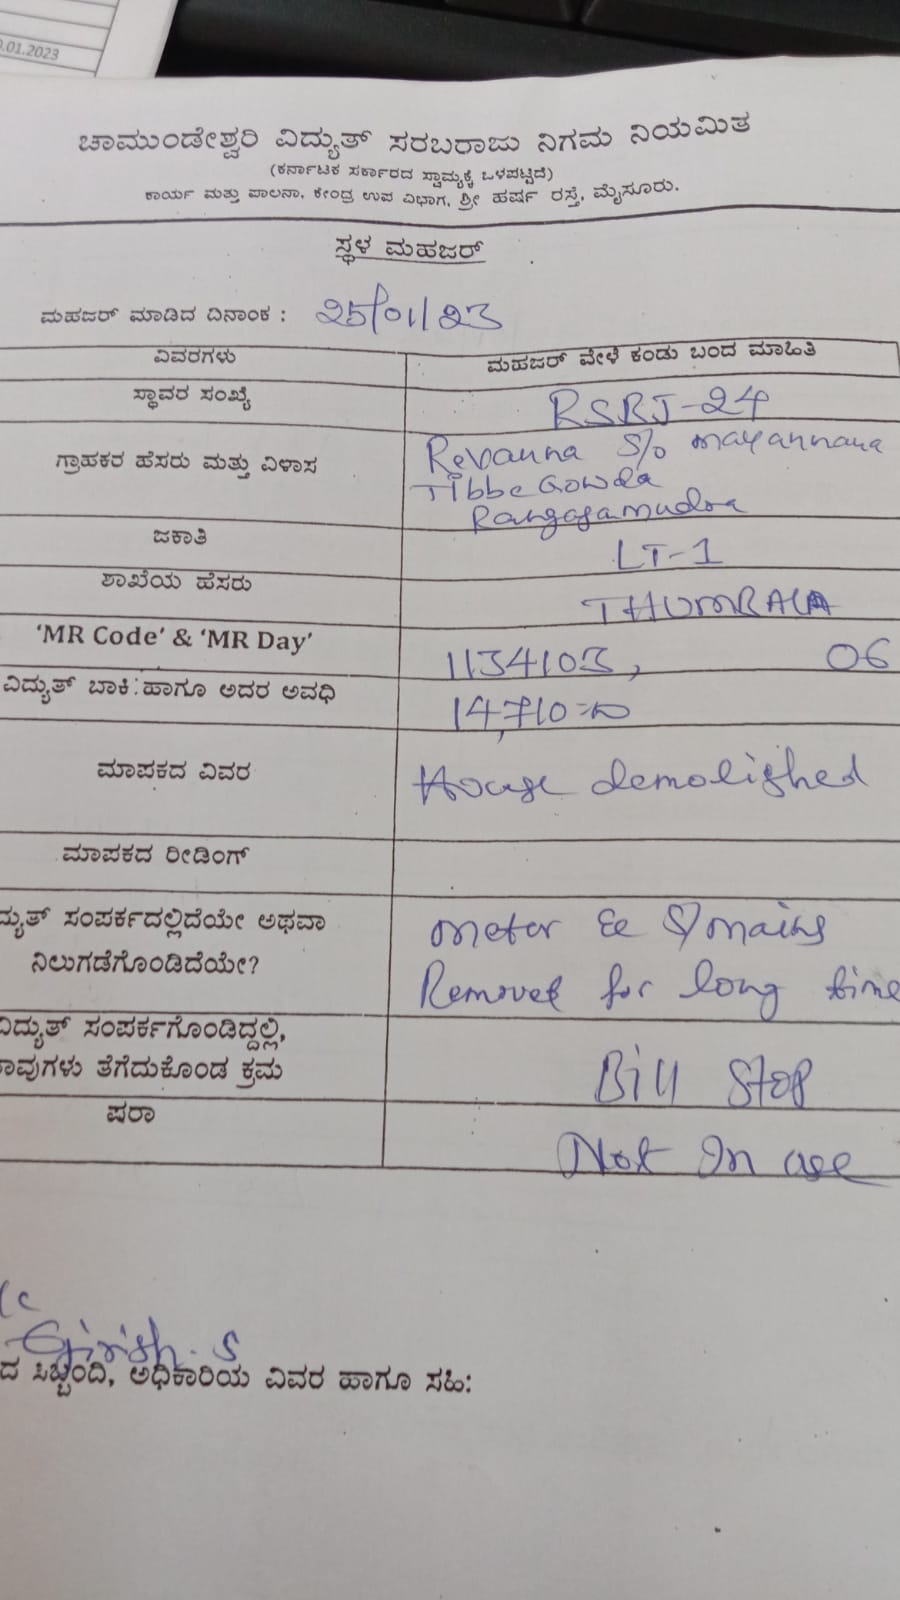 0.01.2023
ಚಾಮುಂಡೇಶ್ವರಿ ವಿದ್ಯುತ್ ಸರಬರಾಜು ನಿಗಮ ನಿಯಮಿತ
(ಕರ್ನಾಟಕ ಸರ್ಕಾರದ ಸ್ವಾಮ್ಯಕ್ಕೆ ಒಳಪಟ್ಟಿದೆ)
ಕಾರ್ಯ ಮತ್ತು ಪಾಲನಾ, ಕೇಂದ್ರ ಉಪ ವಿಭಾಗ, ಶ್ರೀ ಹರ್ಷ ರಸ್ತೆ, ಮೈಸೂರು.
ಸ್ಥಳ ಮಹಜರ್
ಮಹಜರ್ ಮಾಡಿದ ದಿನಾಂಕ : 25/01/23
ವಿವರಗಳು ಮಹಜರ್ ವೇಳೆ ಕಂಡು ಬಂದ ಮಾಹಿತಿ
ಸ್ಥಾವರ ಸಂಖ್ಯೆ RSRJ-24
ಗ್ರಾಹಕರ ಹೆಸರು ಮತ್ತು ವಿಳಾಸ Revanna S/o mayannana
TibbeGowda
Rangasamudra
ಜಕಾತಿ LT-1
ಶಾಖೆಯ ಹೆಸರು THUMBALA
'MR Code' & 'MR Day' 1134103, 06
ವಿದ್ಯುತ್ ಬಾಕಿ ಹಾಗೂ ಅದರ ಅವಧಿ 14,710=00
ಮಾಪಕದ ವಿವರ House demolished
ಮಾಪಕದ ರೀಡಿಂಗ್
ದ್ಯುತ್ ಸಂಪರ್ಕದಲ್ಲಿದೆಯೇ ಅಥವಾ meter & S/mains
ನಿಲುಗಡೆಗೊಂಡಿದೆಯೇ? Removed for long time
ವಿದ್ಯುತ್ ಸಂಪರ್ಕಗೊಂಡಿದ್ದಲ್ಲಿ,
ಾವುಗಳು ತೆಗೆದುಕೊಂಡ ಕ್ರಮ Bill Stop
ಷರಾ Not In use
Girish. S
ದ ಸಿಬ್ಬಂದಿ, ಅಧಿಕಾರಿಯ ವಿವರ ಹಾಗೂ ಸಹಿ: